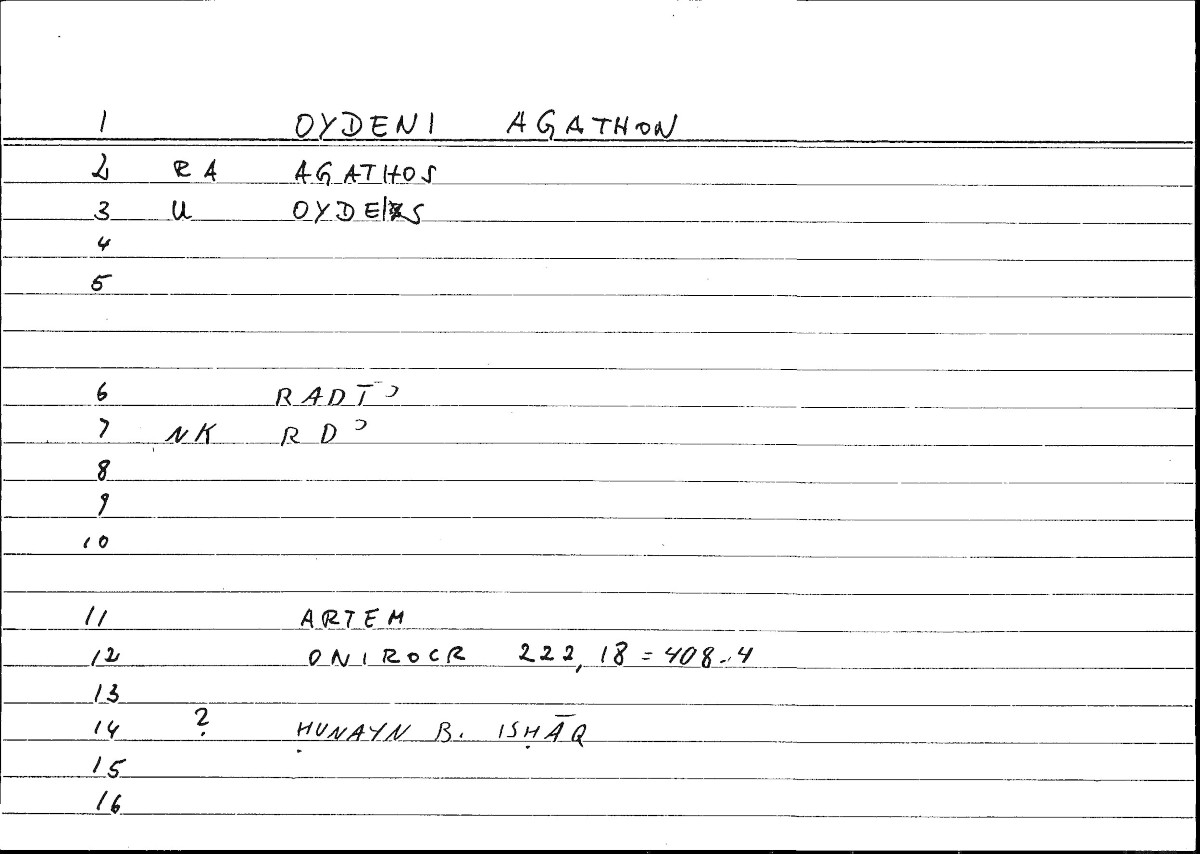 1 OYDENI AGATHON
2 RA AGATHOS
3 U OYDEIS
4
5
6 RADĪʾ
7 NK RDʾ
8
9
10
11 ARTEM
12 ONIROCR 222,18=408.4
13
14 ? ḤUNAYN B. ISḤĀQ
15
16